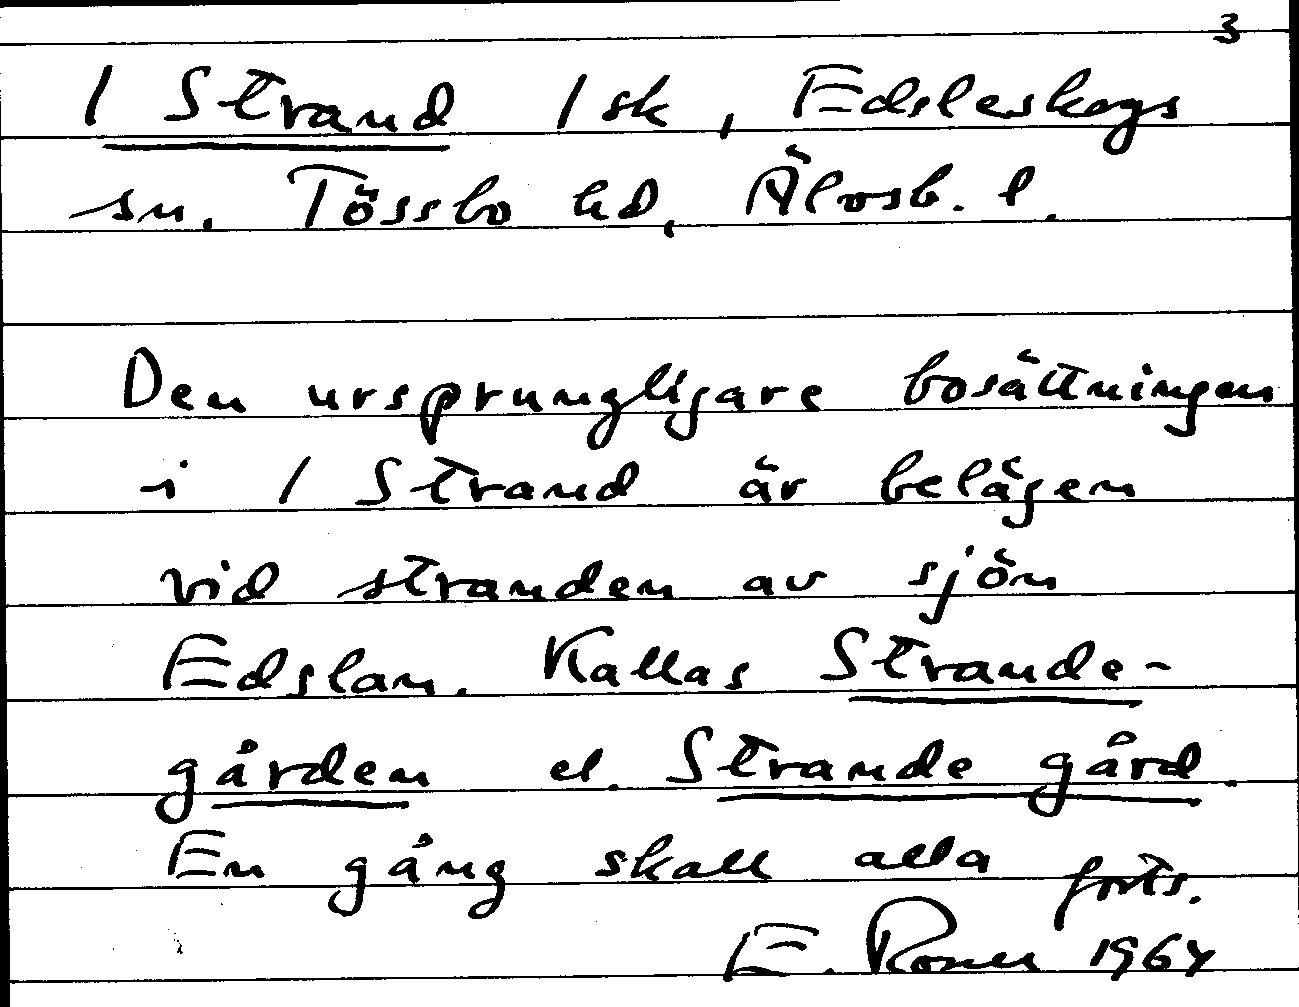 3
1 Strand 1 sk, Edsleskogs
sn. Tössbo hd, Älvsb. l.
Den ursprungligare bosättningen
i 1 Strand är belägen
vid stranden av sjön
Edslan. Kallas Strande-
gården el. Strande gård.
En gång skall alla forts.
E. Roner 1964